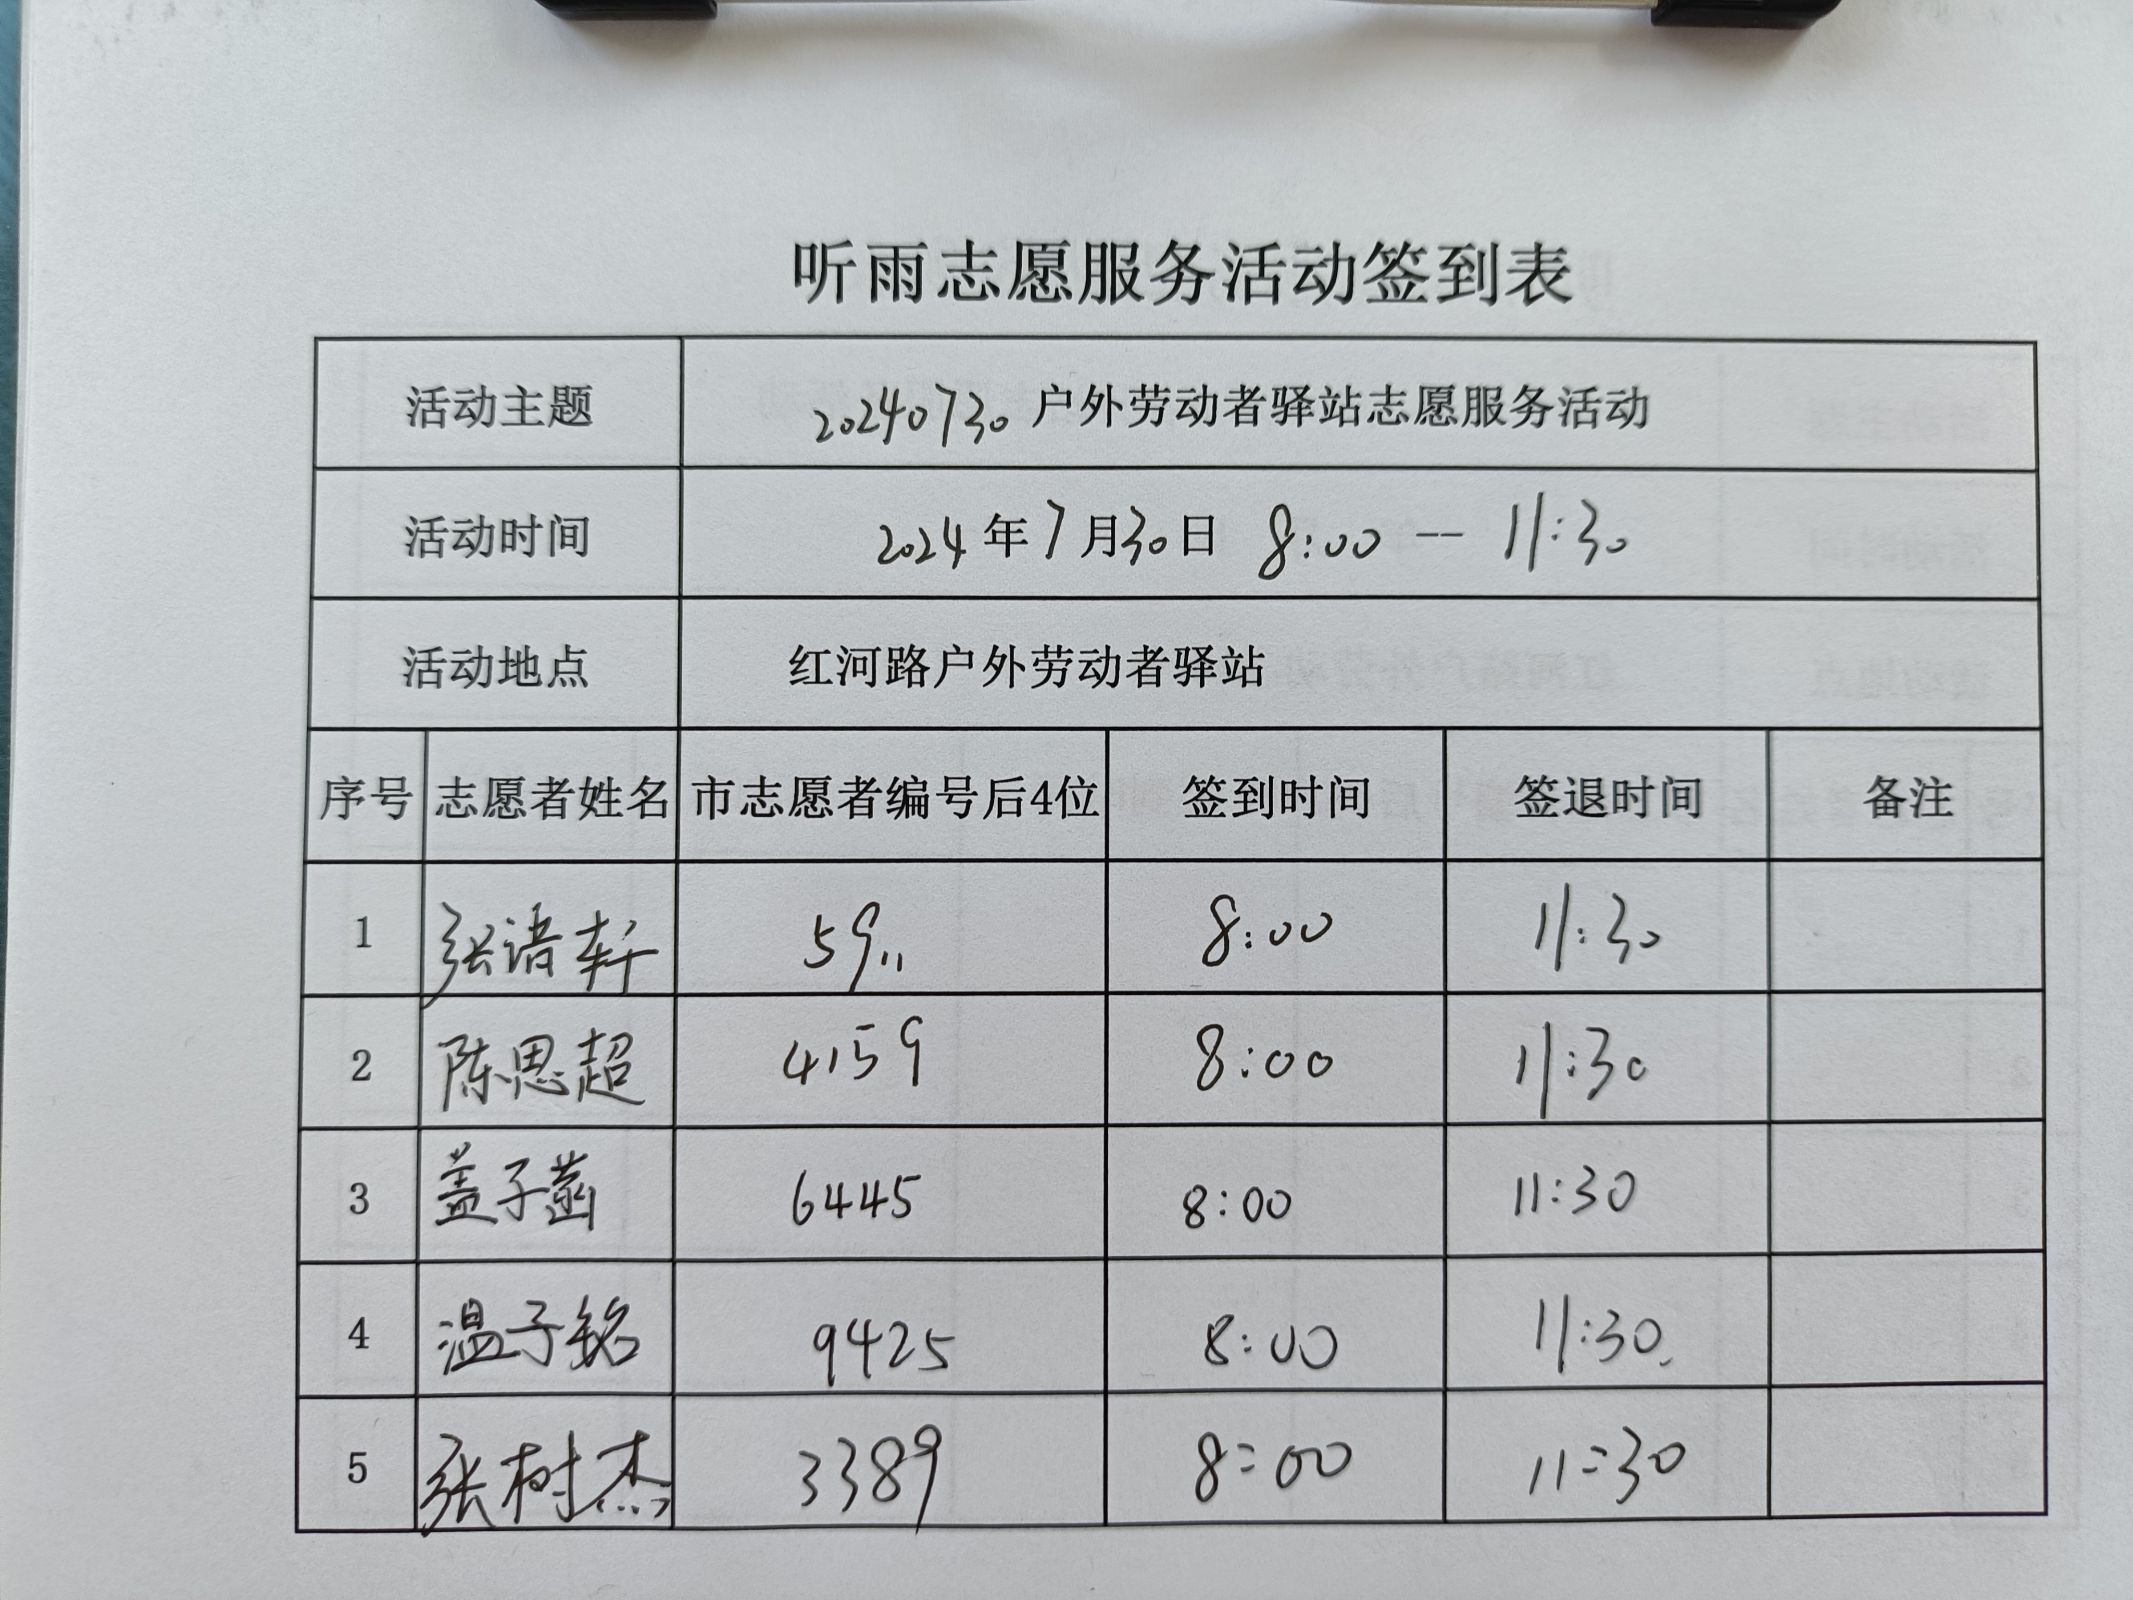 听雨志愿服务活动签到表
活动主题 20240730 户外劳动者驿站志愿服务活动
活动时间 2024 年 7 月 30 日 8:00 -- 11:30
活动地点 红河路户外劳动者驿站
序号 志愿者姓名 市志愿者编号后4位 签到时间 签退时间 备注
1 张谙轩 5911 8:00 11:30
2 陈思超 4159 8:00 11:30
3 盖子菡 6445 8:00 11:30
4 温子铭 9425 8:00 11:30
5 张树杰 3389 8:00 11:30